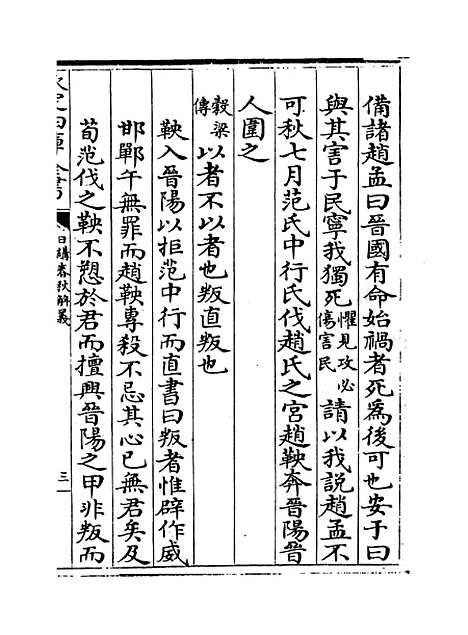 備諸趙孟曰晉國有命始禍者死爲後可也安于曰
與其害于民寧我獨死懼見攻必傷害民請以我說趙孟不
可秋七月范氏中行氏伐趙氏之宮趙鞅奔晉陽晉
人圍之
穀梁傳以者不以者也叛直叛也
鞅入晉陽以拒范中行而直書曰叛者惟辟作威
邯鄲午無罪而趙鞅專殺不忌其心已無君矣及
荀范伐之鞅不愬於君而擅興晉陽之甲非叛而
日講春秋解義